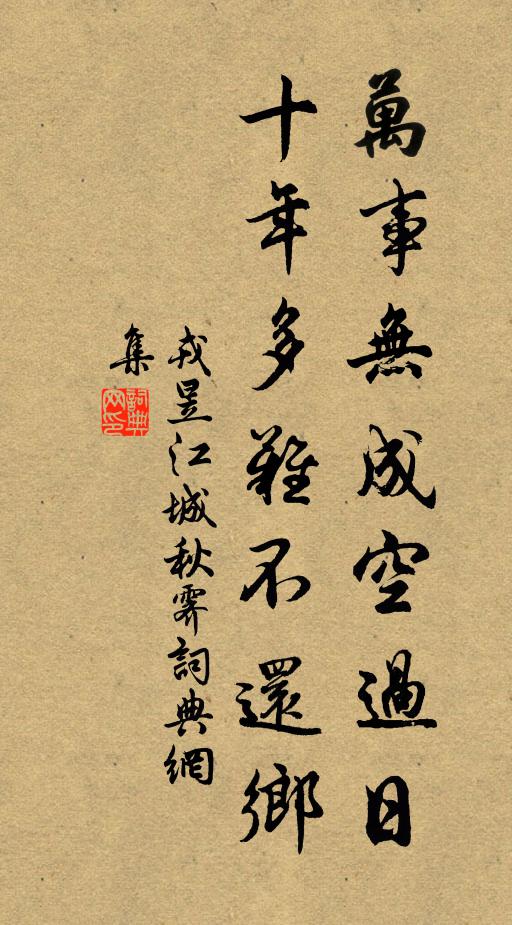 萬事無成空過日
十年多難不還鄉
戎昱江城秋霽詞典網
集
詞典
网印